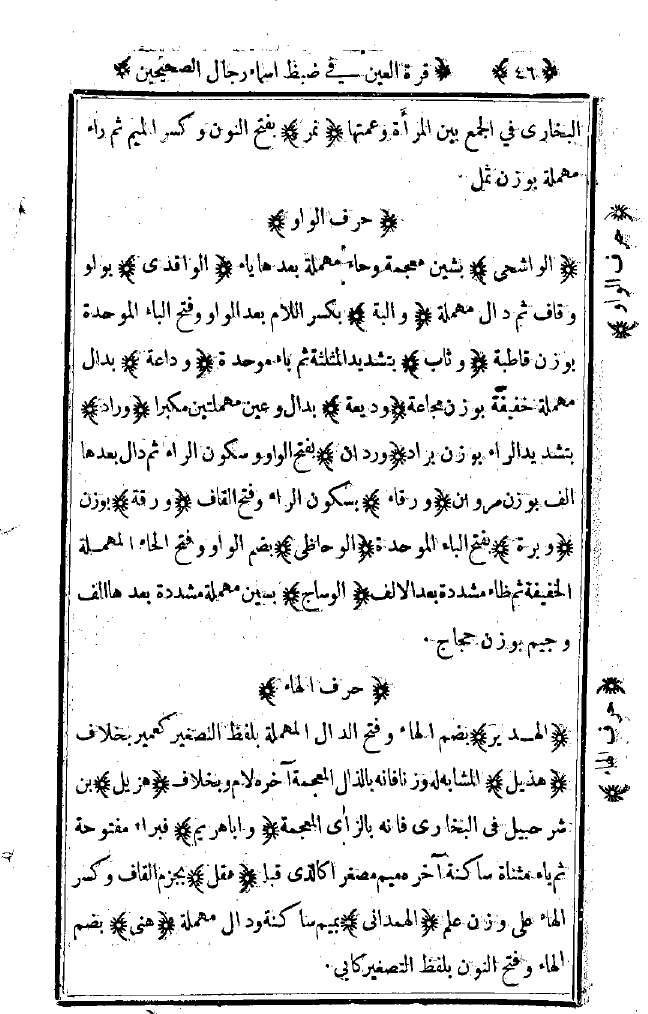 ﴿٤٦﴾ ﴿ قرة العين في ضبط اسماء رجال الصحيحين ﴾
البخارى في الجمع بين المرأة وعمتها ﴿ نمر ﴾ بفتح النون وكسر الميم ثم راء
مهملة بوزن ثمل .
﴿ حرف الواو ﴾
﴿ الواشحى ﴾ بشين معجمة وحاء مهملة بعدها ياء ﴿ الواقدى ﴾ بواو
وقاف ثم دال مهملة ﴿ والبة ﴾ بكسر اللام بعد الواو وفتح الباء الموحدة
بوزن قاطبة ﴿ وثاب ﴾ بتشديد المثلثة ثم باء موحدة ﴿ وداعة ﴾ بدال
مهملة خفيفة بوزن مجاعة ﴿ وديعة ﴾ بدال وعين مهملتين مكبرا ﴿ وراد ﴾
بتشديد الراء بوزن براد ﴿ وردان ﴾ بفتح الواو وسكون الراء ثم دال بعدها
الف بوزن مروان ﴿ ورقاء ﴾ بسكون الراء وفتح القاف ﴿ ورقة ﴾ بوزن
﴿ وبرة ﴾ بفتح الباء الموحدة ﴿ الوحاظى ﴾ بضم الواو وفتح الحاء المهملة
الخفيفة ثم ظاء مشددة بعد الالف ﴿ الوساج ﴾ بسين مهملة مشددة بعدها الف
وجيم بوزن حجاج .
﴿ حرف الهاء ﴾
﴿ الهدير ﴾ بضم الهاء وفتح الدال المهملة بلفظ التصغير كعمير بخلاف
﴿ هذيل ﴾ المشابه له وزنا فانه بالذال المعجمة آخره لام وبخلاف ﴿ هزيل ﴾ بن
شرحبيل فى البخارى فانه بالزاى المعجمة ﴿ واباهريم ﴾ فبراء مفتوحة
ثم ياء مثناة ساكنة آخره ميم مصغرا كالذى قبل ﴿ هقل ﴾ بجزم القاف وكسر
الهاء على وزن علم ﴿ الهمدانى ﴾ بميم ساكنة ودال مهملة ﴿ هنى ﴾ بضم
الهاء وفتح النون بلفظ التصغير كابي .
﴿ حرف الواو ﴾
﴿ حرف الهاء ﴾